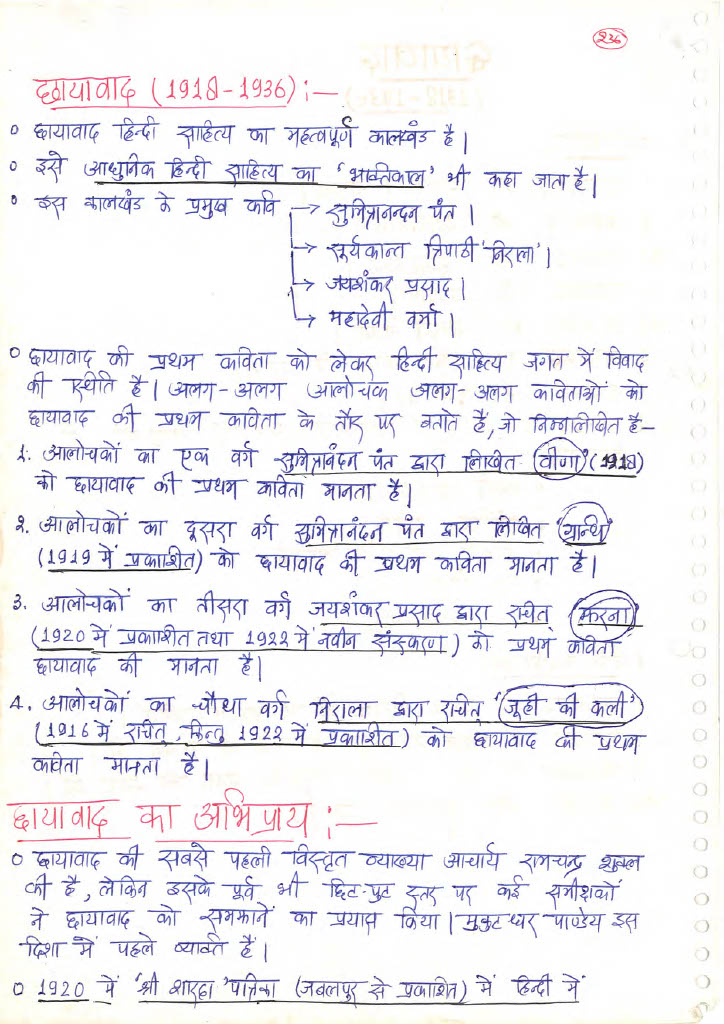 236
छायावाद (1918-1936) :—
० छायावाद हिन्दी साहित्य का महत्वपूर्ण कालखंड है।
० इसे आधुनिक हिन्दी साहित्य का 'भक्तिकाल' भी कहा जाता है।
० इस कालखंड के प्रमुख कवि → सुमित्रानन्दन पंत।
→ सूर्यकान्त त्रिपाठी 'निराला'।
→ जयशंकर प्रसाद।
→ महादेवी वर्मा।
० छायावाद की प्रथम कविता को लेकर हिन्दी साहित्य जगत में विवाद
की स्थिति है। अलग-अलग आलोचक अलग-अलग कविताओं को
छायावाद की प्रथम कविता के तौर पर बताते हैं, जो निम्नलिखित है—
1. आलोचकों का एक वर्ग सुमित्रानंदन पंत द्वारा लिखित 'वीणा' (1918)
को छायावाद की प्रथम कविता मानता है।
2. आलोचकों का दूसरा वर्ग सुमित्रानंदन पंत द्वारा लिखित 'ग्रान्थि'
(1919 में प्रकाशित) को छायावाद की प्रथम कविता मानता है।
3. आलोचकों का तीसरा वर्ग जयशंकर प्रसाद द्वारा रचित 'झरना'
(1920 में प्रकाशित तथा 1922 में नवीन संस्करण) को प्रथम कविता
छायावाद की मानता है।
4. आलोचकों का चौथा वर्ग निराला द्वारा रचित 'जूही की कली'
(1916 में रचित, किन्तु 1922 में प्रकाशित) को छायावाद की प्रथम
कविता मानता है।
छायावाद का अभिप्राय :—
० छायावाद की सबसे पहली विस्तृत व्याख्या आचार्य रामचन्द्र शुक्ल
की है, लेकिन उसके पूर्व भी छिट-पुट स्तर पर कई समीक्षकों
ने छायावाद को समझाने का प्रयास किया। मुकुटधर पाण्डेय इस
दिशा में पहले व्यक्ति हैं।
० 1920 में 'श्री शारदा' पत्रिका (जबलपुर से प्रकाशित) में हिन्दी में